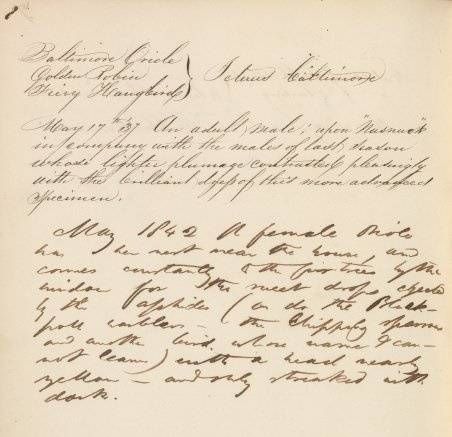 Baltimore Oriole
Golden Robin
Fiery Hangbird } Icterus Baltimore
May 17th 37 An adult male; upon "Nasnuck"
in company with the males of last season
whose lighter plumage contrasted pleasingly
with the brilliant dress of this more advanced
specimen.
May 1842 A female Oriole
has her nest near the house, and
comes constantly to the by the
window for the sweet drops ejected
by the aphides (as do the Black-
poll warblers – the Chipping sparrow
and another bird, whose name I can-
not learn) with a head nearly
yellow – and only streaked with
dark.